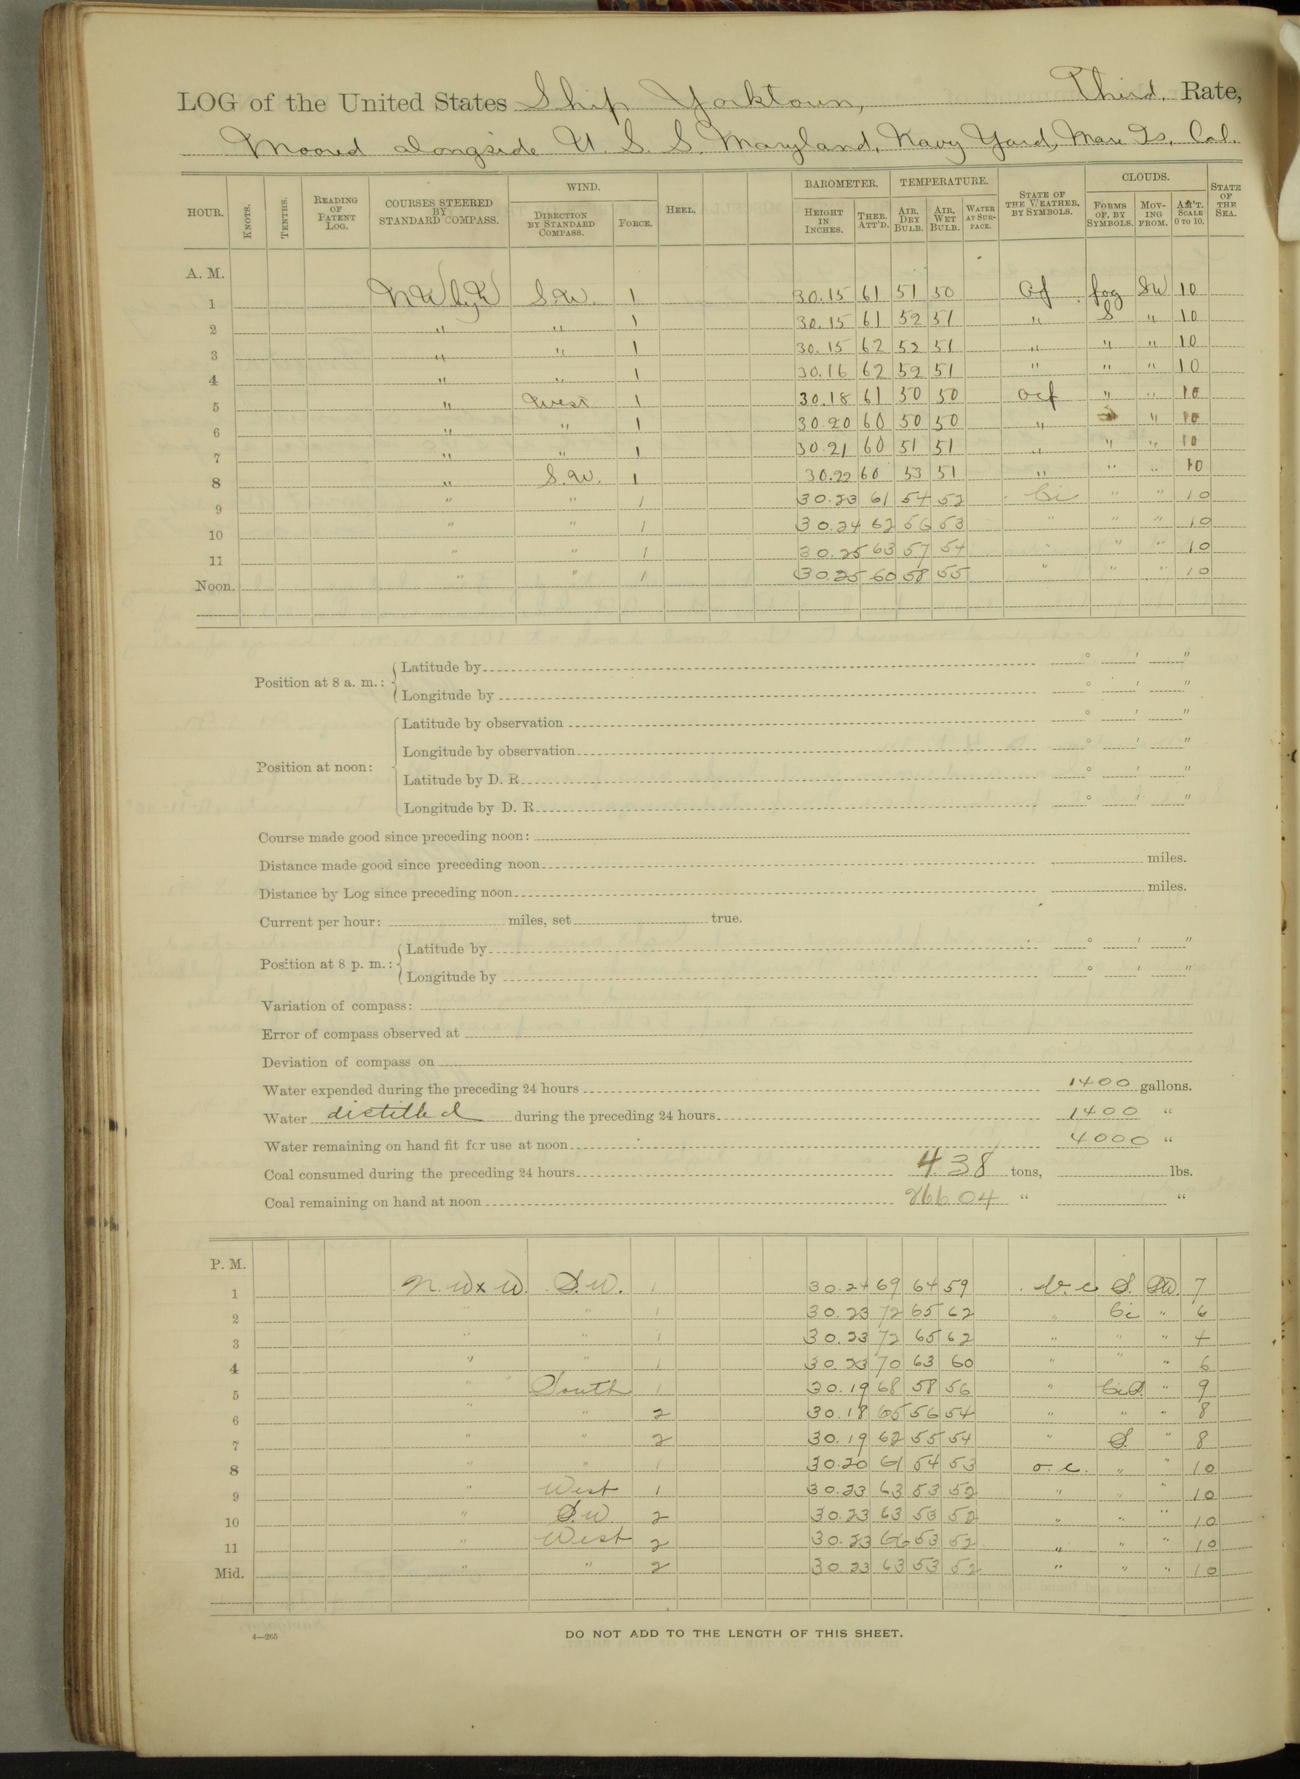 LOG of the United States Ship Yorktown, Third Rate,
Moored alongside U. S. S. Maryland, Navy Yard, Mare Is, Cal.
HOUR. KNOTS. TENTHS. READING OF PATENT LOG. COURSES STEERED BY STANDARD COMPASS. WIND. DIRECTION BY STANDARD COMPASS. FORCE. HEEL. BAROMETER. HEIGHT IN INCHES. THER. ATT'D. TEMPERATURE. AIR, DRY BULB. AIR, WET BULB. WATER AT SURFACE. STATE OF THE WEATHER, BY SYMBOLS. CLOUDS. FORMS OF, BY SYMBOLS. MOVING FROM. AM'T. SCALE 0 TO 10. STATE OF THE SEA.
A. M.
1 NW by W S.W. 1 30.15 61 51 50 Of fog SW 10
2 " " 1 30.15 61 52 51 " S " 10
3 " " 1 30.15 62 52 51 " " " 10
4 " " 1 30.16 62 52 51 " " " 10
5 " West 1 30.18 61 50 50 Ocf " " 10
6 " " 1 30.20 60 50 50 " " 10
7 " " 1 30.21 60 51 51 " " " 10
8 " S.W. 1 30.22 60 53 51 " " " 10
9 " " 1 30.23 61 54 52 " " 10
10 " " 1 30.24 62 56 53 " " " 10
11 " " 1 30.25 63 57 54 " " " 10
Noon. " " 1 30.25 60 58 55 " " " 10
Position at 8 a. m.: Latitude by ° ' "
Longitude by ° ' "
Position at noon: Latitude by observation ° ' "
Longitude by observation ° ' "
Latitude by D. R. ° ' "
Longitude by D. R. ° ' "
Course made good since preceding noon:
Distance made good since preceding noon miles.
Distance by Log since preceding noon miles.
Current per hour: miles, set true.
Position at 8 p. m.: Latitude by ° ' "
Longitude by ° ' "
Variation of compass:
Error of compass observed at
Deviation of compass on
Water expended during the preceding 24 hours 1400 gallons.
Water distilled during the preceding 24 hours 1400 "
Water remaining on hand fit for use at noon 4000 "
Coal consumed during the preceding 24 hours 4 38 tons, lbs.
Coal remaining on hand at noon 266 04 " "
P. M.
1 N.WxW. S.W. 1 30.24 69 64 59 b.c S. SW. 7
2 " " 1 30.23 72 65 62 " Ci " 6
3 " " 1 30.23 72 65 62 " " " 4
4 " " 1 30.23 70 63 60 " " " 6
5 " South 1 30.19 68 58 56 " Ci.S. " 9
6 " " 2 30.18 65 56 54 " " " 8
7 " " 2 30.19 62 55 54 " S. " 8
8 " " 1 30.20 61 54 53 o.c. " " 10
9 " West 1 30.23 63 53 52 " " " 10
10 " S.W 2 30.23 63 53 52 " " " 10
11 " West 2 30.23 66 53 52 " " " 10
Mid. " " 2 30.23 63 53 52 " " " 10
4—265 DO NOT ADD TO THE LENGTH OF THIS SHEET.